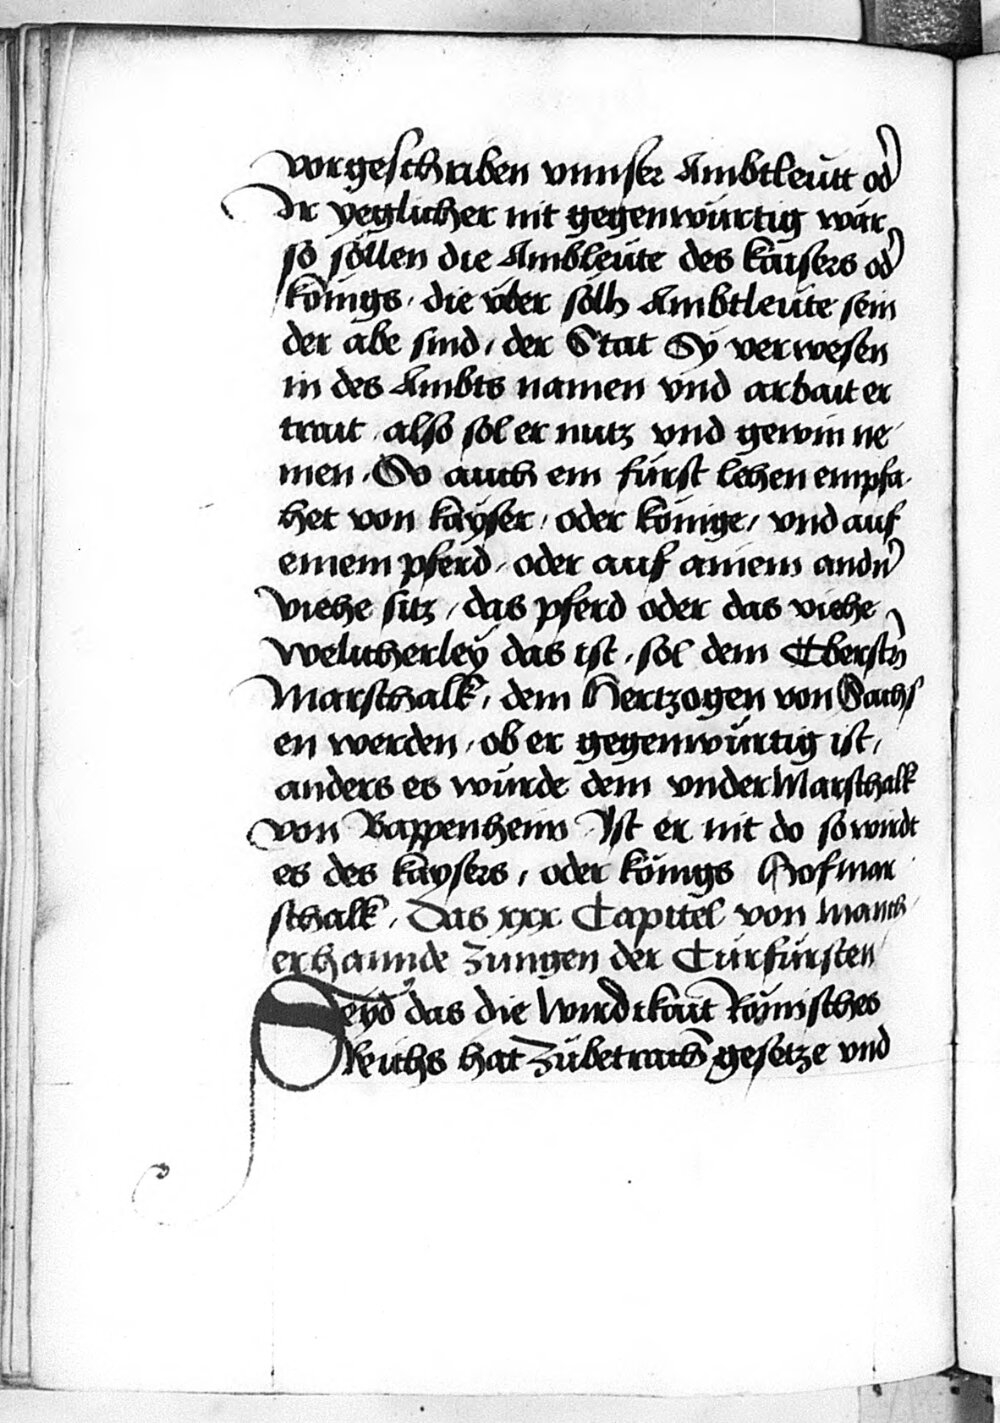 vorgeschriben vnnser Ambtleŭtt od̉
Ir yeglicher nit gegenwŭrtig wär
so söllen die Ambleŭte des kaisers od̉
königs / die v̈ber sölh Ambtleŭte sein
der abe sind / der Stat Sy verwesen
in des Ambts namen vnd arbait er
trait also sol er nutz vnd gewin ne
men . So auch ein fürst lehen empfa
het von kayser / oder könige / vnd auf
einem pferd / oder auf ainem andn̉
viehe sitz / das pferd oder das viehe
welicherleÿ das ist / sol dem Öberstn̄
Marschalk / dem Hertzogen von Sachs
en werden / ob er gegenwŭrtig ist /
anders es würde dem vnder Marschalk
von Bappenheim Ist er nit do so wirdt
es des kaysers / oder königs Hofmar
schalk / Das xxx Capitel von manch
erhannde Zungen der Cŭrfŭrsten
Seyd das die wirdikait Römisches
Reichs hat Zŭbetrach̄ gesetze vnd